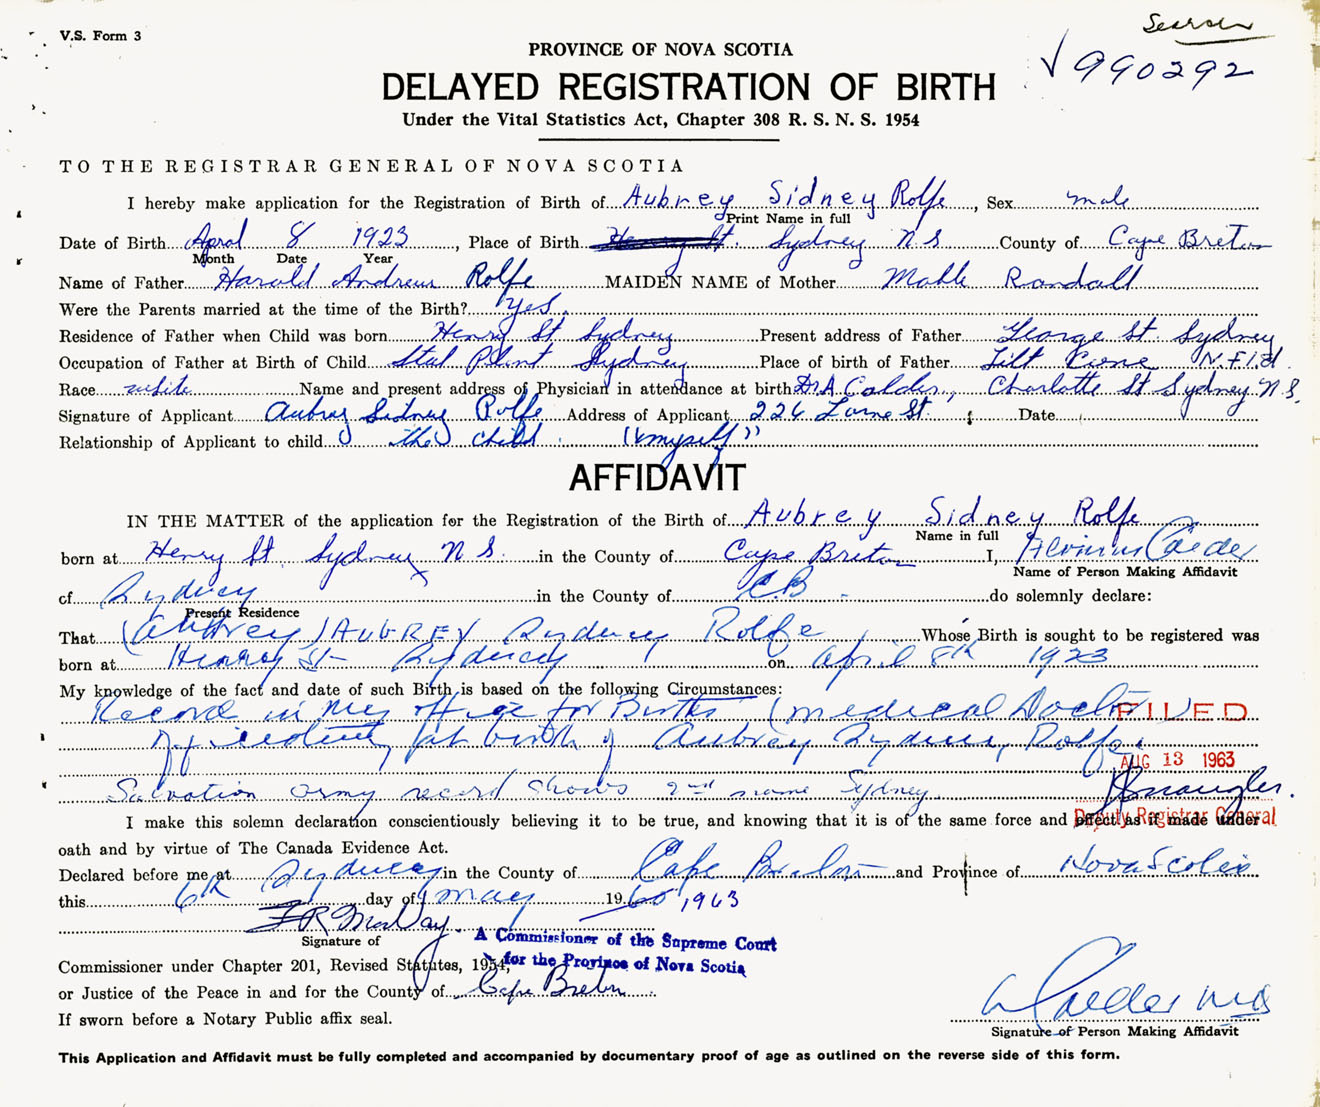 V.S. Form 3
Search
PROVINCE OF NOVA SCOTIA
√990292
DELAYED REGISTRATION OF BIRTH
Under the Vital Statistics Act, Chapter 308 R. S. N. S. 1954
TO THE REGISTRAR GENERAL OF NOVA SCOTIA
I hereby make application for the Registration of Birth of Aubrey Sidney Rolfe, Sex male
Print Name in full
Date of Birth April 8 1923, Place of Birth Henry St. Sydney N S County of Cape Breton
Month Date Year
Name of Father Harold Andrew Rolfe MAIDEN NAME of Mother Mable Randall
Were the Parents married at the time of the Birth? Yes.
Residence of Father when Child was born Henry St Sydney Present address of Father George St. Sydney
Occupation of Father at Birth of Child Steel Plant Sydney Place of birth of Father Tilt Cove N.F.l.d.
Race white Name and present address of Physician in attendance at birth Dr. A. Calder, Charlotte St Sydney N S.
Signature of Applicant Aubrey Sidney Rolfe Address of Applicant 226 Lorne St. Date
Relationship of Applicant to child the child ("myself")
AFFIDAVIT
IN THE MATTER of the application for the Registration of the Birth of Aubrey Sidney Rolfe
Name in full
born at Henry St. Sydney N S. in the County of Cape Breton I, Calder
Name of Person Making Affidavit
of Sydney in the County of C.B. do solemnly declare:
Present Residence
That (Aubrey) AUBREY Sydney Rolfe Whose Birth is sought to be registered was
born at Henry St Sydney on April 8th 1923
My knowledge of the fact and date of such Birth is based on the following Circumstances:
Record in my office for Births (medical Doctor
FILED
at birth of Aubrey Sydney Rolfe.
AUG 13 1963
Salvation Army record shows 2nd name Sydney.
I make this solemn declaration conscientiously believing it to be true, and knowing that it is of the same force and effect as if made under
Deputy Registrar General
oath and by virtue of The Canada Evidence Act.
Declared before me at Sydney in the County of Cape Breton and Province of Nova Scotia
this 6th day of May 1960 1963
Signature of
A Commissioner of the Supreme Court
for the Province of Nova Scotia
Commissioner under Chapter 201, Revised Statutes, 1954,
or Justice of the Peace in and for the County of Cape Breton
Calder MD
If sworn before a Notary Public affix seal.
Signature of Person Making Affidavit
This Application and Affidavit must be fully completed and accompanied by documentary proof of age as outlined on the reverse side of this form.